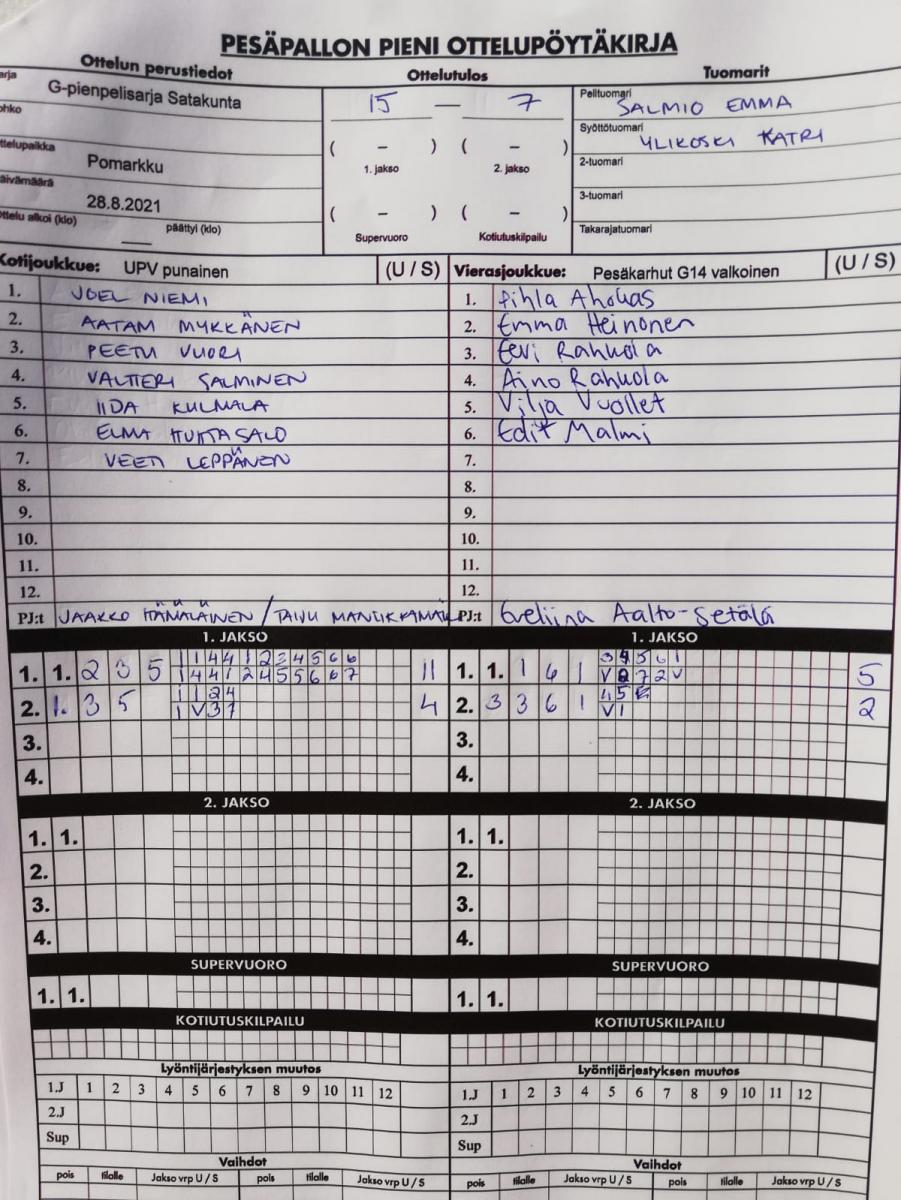 PESÄPALLON PIENI OTTELUPÖYTÄKIRJA
Ottelun perustiedot
Ottelutulos
Tuomarit
arja
G-pienpelisarja Satakunta
ohko
ttelupaikka
Pomarkku
äivämäärä
28.8.2021
ttelu alkoi (klo)
päättyi (klo)
15 — 7
( – ) ( – )
1. jakso 2. jakso
( – ) ( – )
Supervuoro Kotiutuskilpailu
Pelituomari
SALMIO EMMA
Syöttötuomari
YLIKOSKI KATRI
2-tuomari
3-tuomari
Takarajatuomari
Kotijoukkue: UPV punainen (U / S)
1. JOEL NIEMI
2. AATAM MYKKÄNEN
3. PEETU VUORI
4. VALTTERI SALMINEN
5. IIDA KULMALA
6. ELMA HUHTASALO
7. VEETI LEPPÄNEN
8.
9.
10.
11.
12.
PJ:t JAAKKO HÄMÄLÄINEN / TAIJU
Vierasjoukkue: Pesäkarhut G14 valkoinen (U / S)
1. Pihla Ahokas
2. Emma Heinonen
3. Eevi Rahkola
4. Aino Rahkola
5. Vilja Vuollet
6. Edit Malmi
7.
8.
9.
10.
11.
12.
PJ:t Eveliina Aalto-Setälä
1. JAKSO
1. 1. 2 3 5 1 1 4 4 1 2 3 4 5 6 6 11
1 4 4 1 2 4 5 5 6 6 7
2. 1. 3 5 1 1 2 4 4
1 V 3 7
3.
4.
1. JAKSO
1. 1. 1 6 1 5
2. 3 3 6 1 2
3.
4.
2. JAKSO
1. 1.
2.
3.
4.
2. JAKSO
1. 1.
2.
3.
4.
SUPERVUORO
1. 1.
SUPERVUORO
1. 1.
KOTIUTUSKILPAILU
KOTIUTUSKILPAILU
Lyöntijärjestyksen muutos
1.J 1 2 3 4 5 6 7 8 9 10 11 12
2.J
Sup
Lyöntijärjestyksen muutos
1.J 1 2 3 4 5 6 7 8 9 10 11 12
2.J
Sup
Vaihdot
pois tilalle Jakso vrp U / S pois tilalle Jakso vrp U / S
Vaihdot
pois tilalle Jakso vrp U / S pois tilalle Jakso vrp U / S